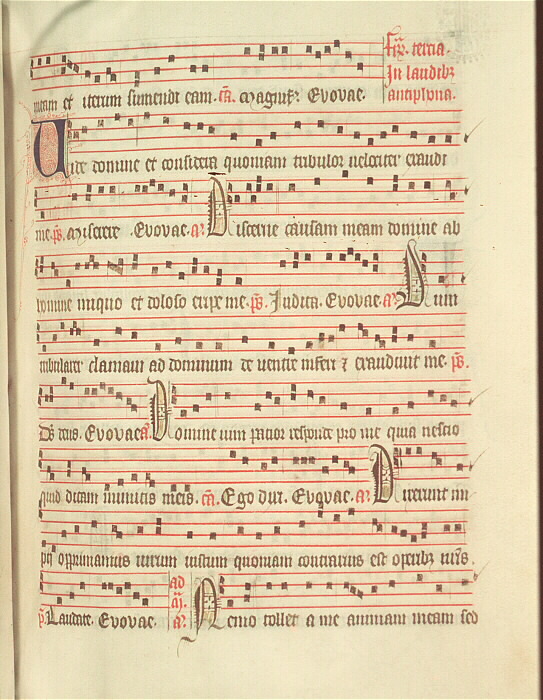 feria tercia.
In laudibz
antiphona.
meam et iterum sumendi eam. ca. Magnif. Evovae.
Vide domine et considera quoniam tribulor velociter exaudi
me. ps. Miserere. Evovae. a. Discerne causam meam domine ab
homine iniquo et doloso eripe me. ps. Judica. Evovae. a. Dum
tribularer clamavi ad dominum de ventre inferi z exaudivit me. ps.
Ds deus. Evovae a. Domine vim patior responde pro me quia nescio
quid dicam inimicis meis. ca. Ego dixi. Evovae. a. Dixerunt im
pii opprimamus virum iustum quoniam contrarius est operibz nris.
ps. Laudate. Evovae. ad a. Nemo tollet a me animam meam sed